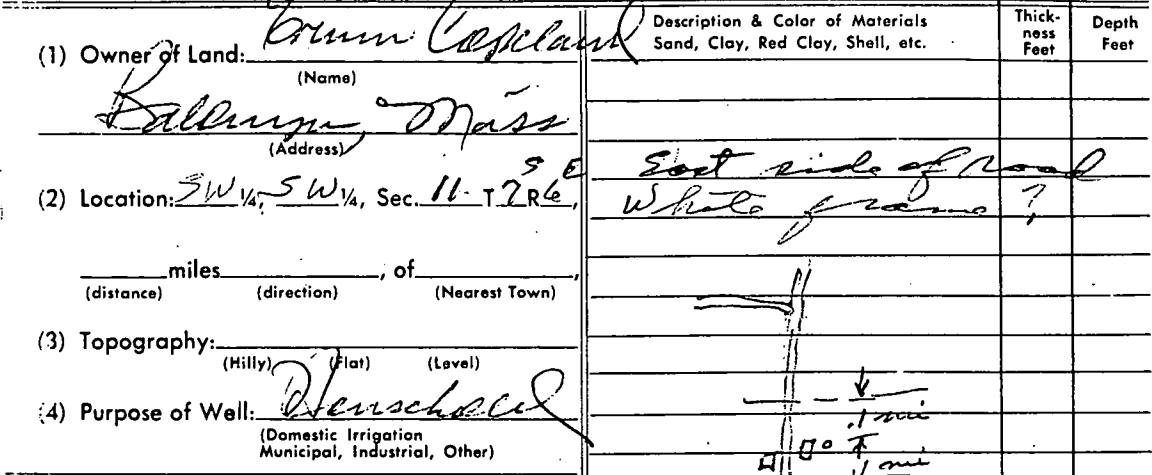 (1) Owner of Land: Copeland
(Name)
Baldwyn, Miss
(Address)
(2) Location: SW ¼, SW ¼, Sec. 11 T 7 S R 6 E,
miles , of ,
(distance) (direction) (Nearest Town)
(3) Topography:
(Hilly) (Flat) (Level)
(4) Purpose of Well:
(Domestic Irrigation
Municipal, Industrial, Other)
Description & Color of Materials
Sand, Clay, Red Clay, Shell, etc.
Thick-
ness
Feet
Depth
Feet
East side of road
White frame ?
.1 mi
.1 mi